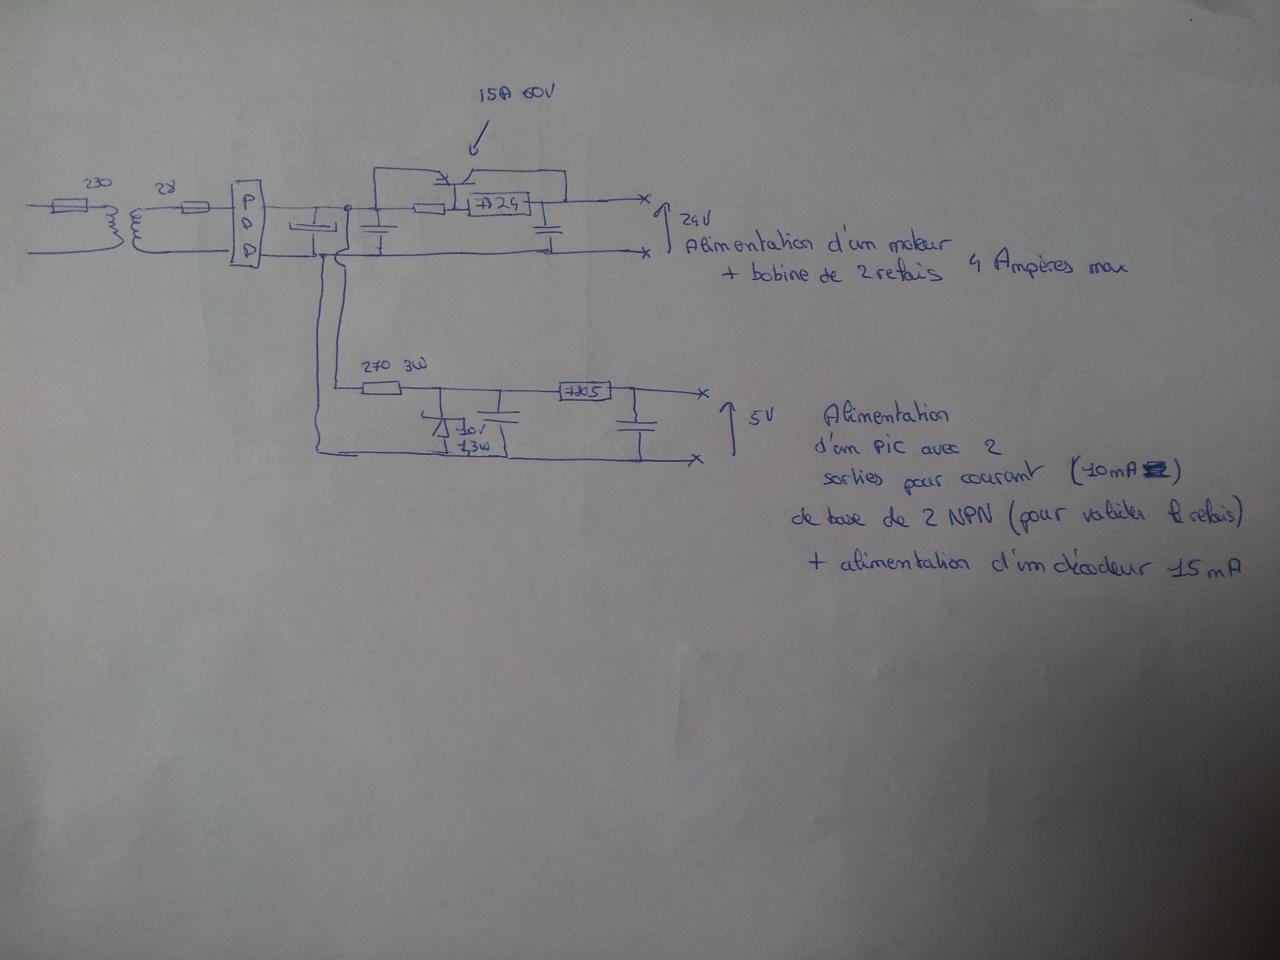 15A 60V
230
28
P
D
D
7824
24V
Alimentation d'un moteur
+ bobine de 2 relais 4 Ampères max
270 3W
7805
10V
1,3W
5V
Alimentation
d'un PIC avec 2
sorties pour courant (10mA)
de base de 2 NPN (pour valider le relais)
+ alimentation d'un décodeur 15mA